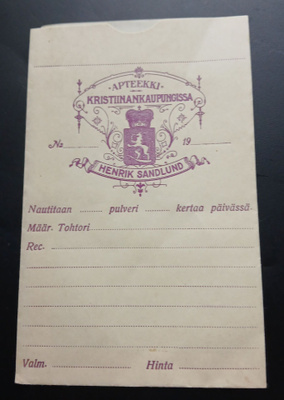 · APTEEKKI ·
KRISTIINANKAUPUNGISSA
No 19
HENRIK SANDLUND
Nautitaan ........ pulveri ........ kertaa päivässä.
Määr. Tohtori
Rec.
Valm. Hinta